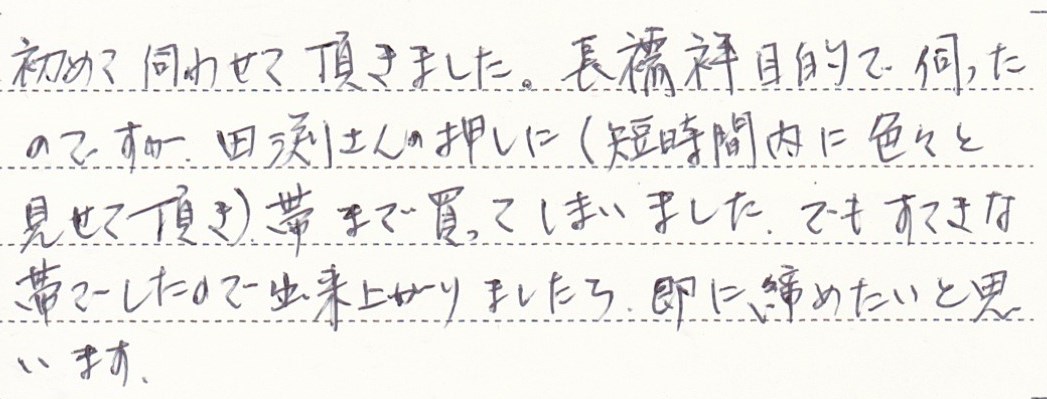 初めて伺わせて頂きました。長襦袢目的で伺った
のですが、田渕さんの押しに(短時間内に色々と
見せて頂き)、帯まで買ってしまいました、でもすてきな
帯でしたので出来上がりましたら、即に、締めたいと思
います、